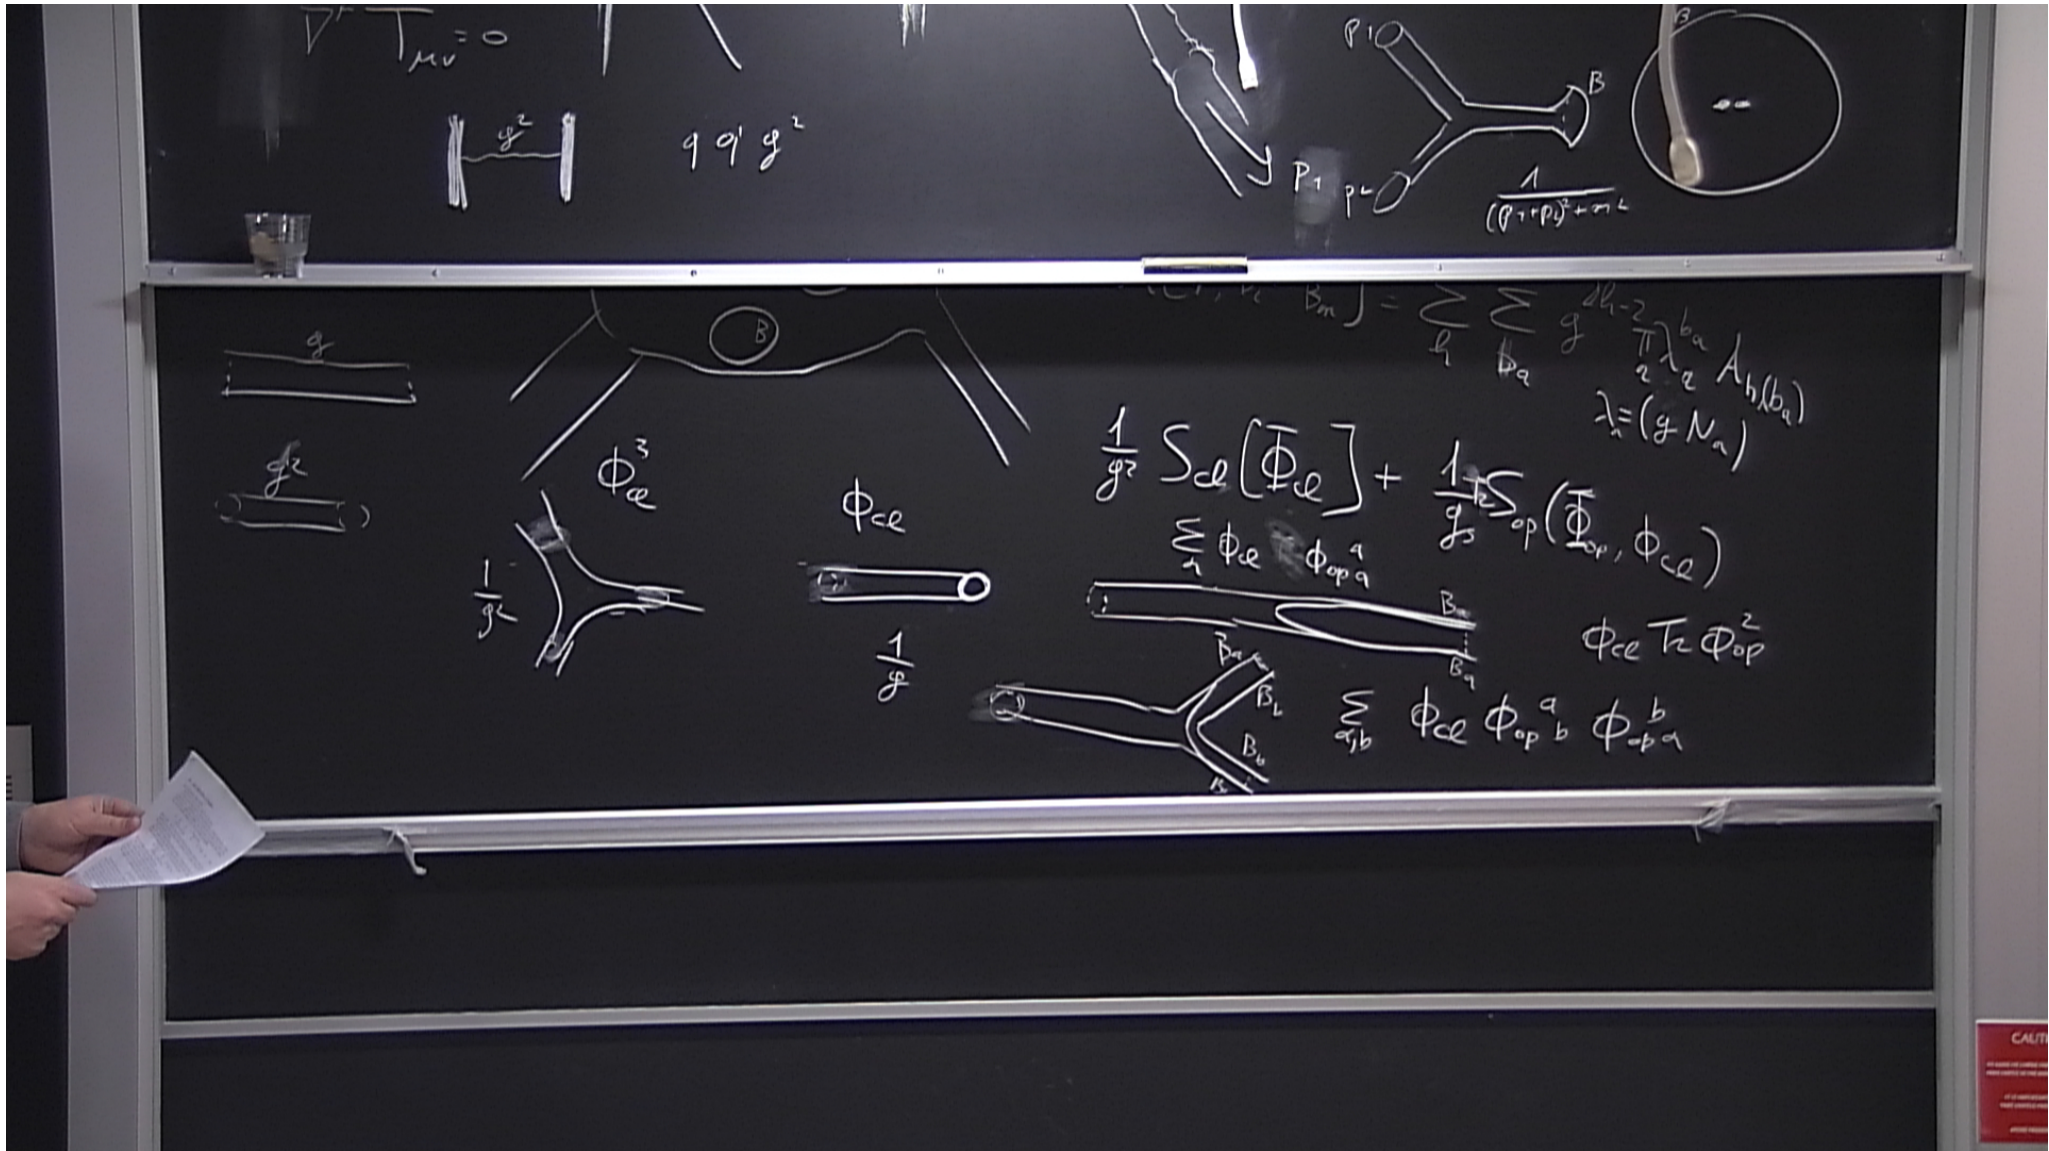 ∇^μ T_{μν} = 0
g²
q q' g²
P1
B
P1
P2
1/((P1+P2)²+m²)
B
g
B
B_m) = Σ_h Σ_{b_a} g^{2h-2} Π_a λ_a^{b_a} A_{h,(b_a)}
λ_a = (g N_a)
g²
Φ_{cl}^3
ϕ_{cl}
1/g² S_{cl}[Φ_{cl}] + 1/g_s S_{op}(Φ_{op}, ϕ_{cl})
Σ_a ϕ_{cl} ϕ_{op}{}^a{}_a
1/g²
B_a
B_a
ϕ_{cl} Tr ϕ_{op}^2
1/g
B_a
B_b
B_b
Σ_{a,b} ϕ_{cl} ϕ_{op}{}^a{}_b ϕ_{op}{}^b{}_a